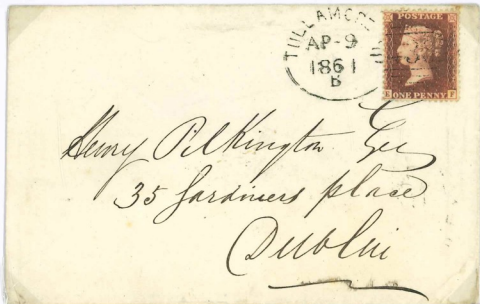 TULLAMORE
AP-9
1861
B
POSTAGE
E F
ONE PENNY
Henry Pilkington Esq
35 Gardiners place
Dublin